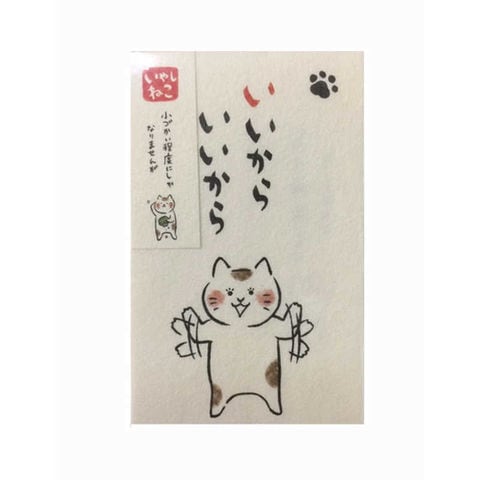 いいから
いいから
いやし
ねこ
小づかい程度にしか
なりませんが